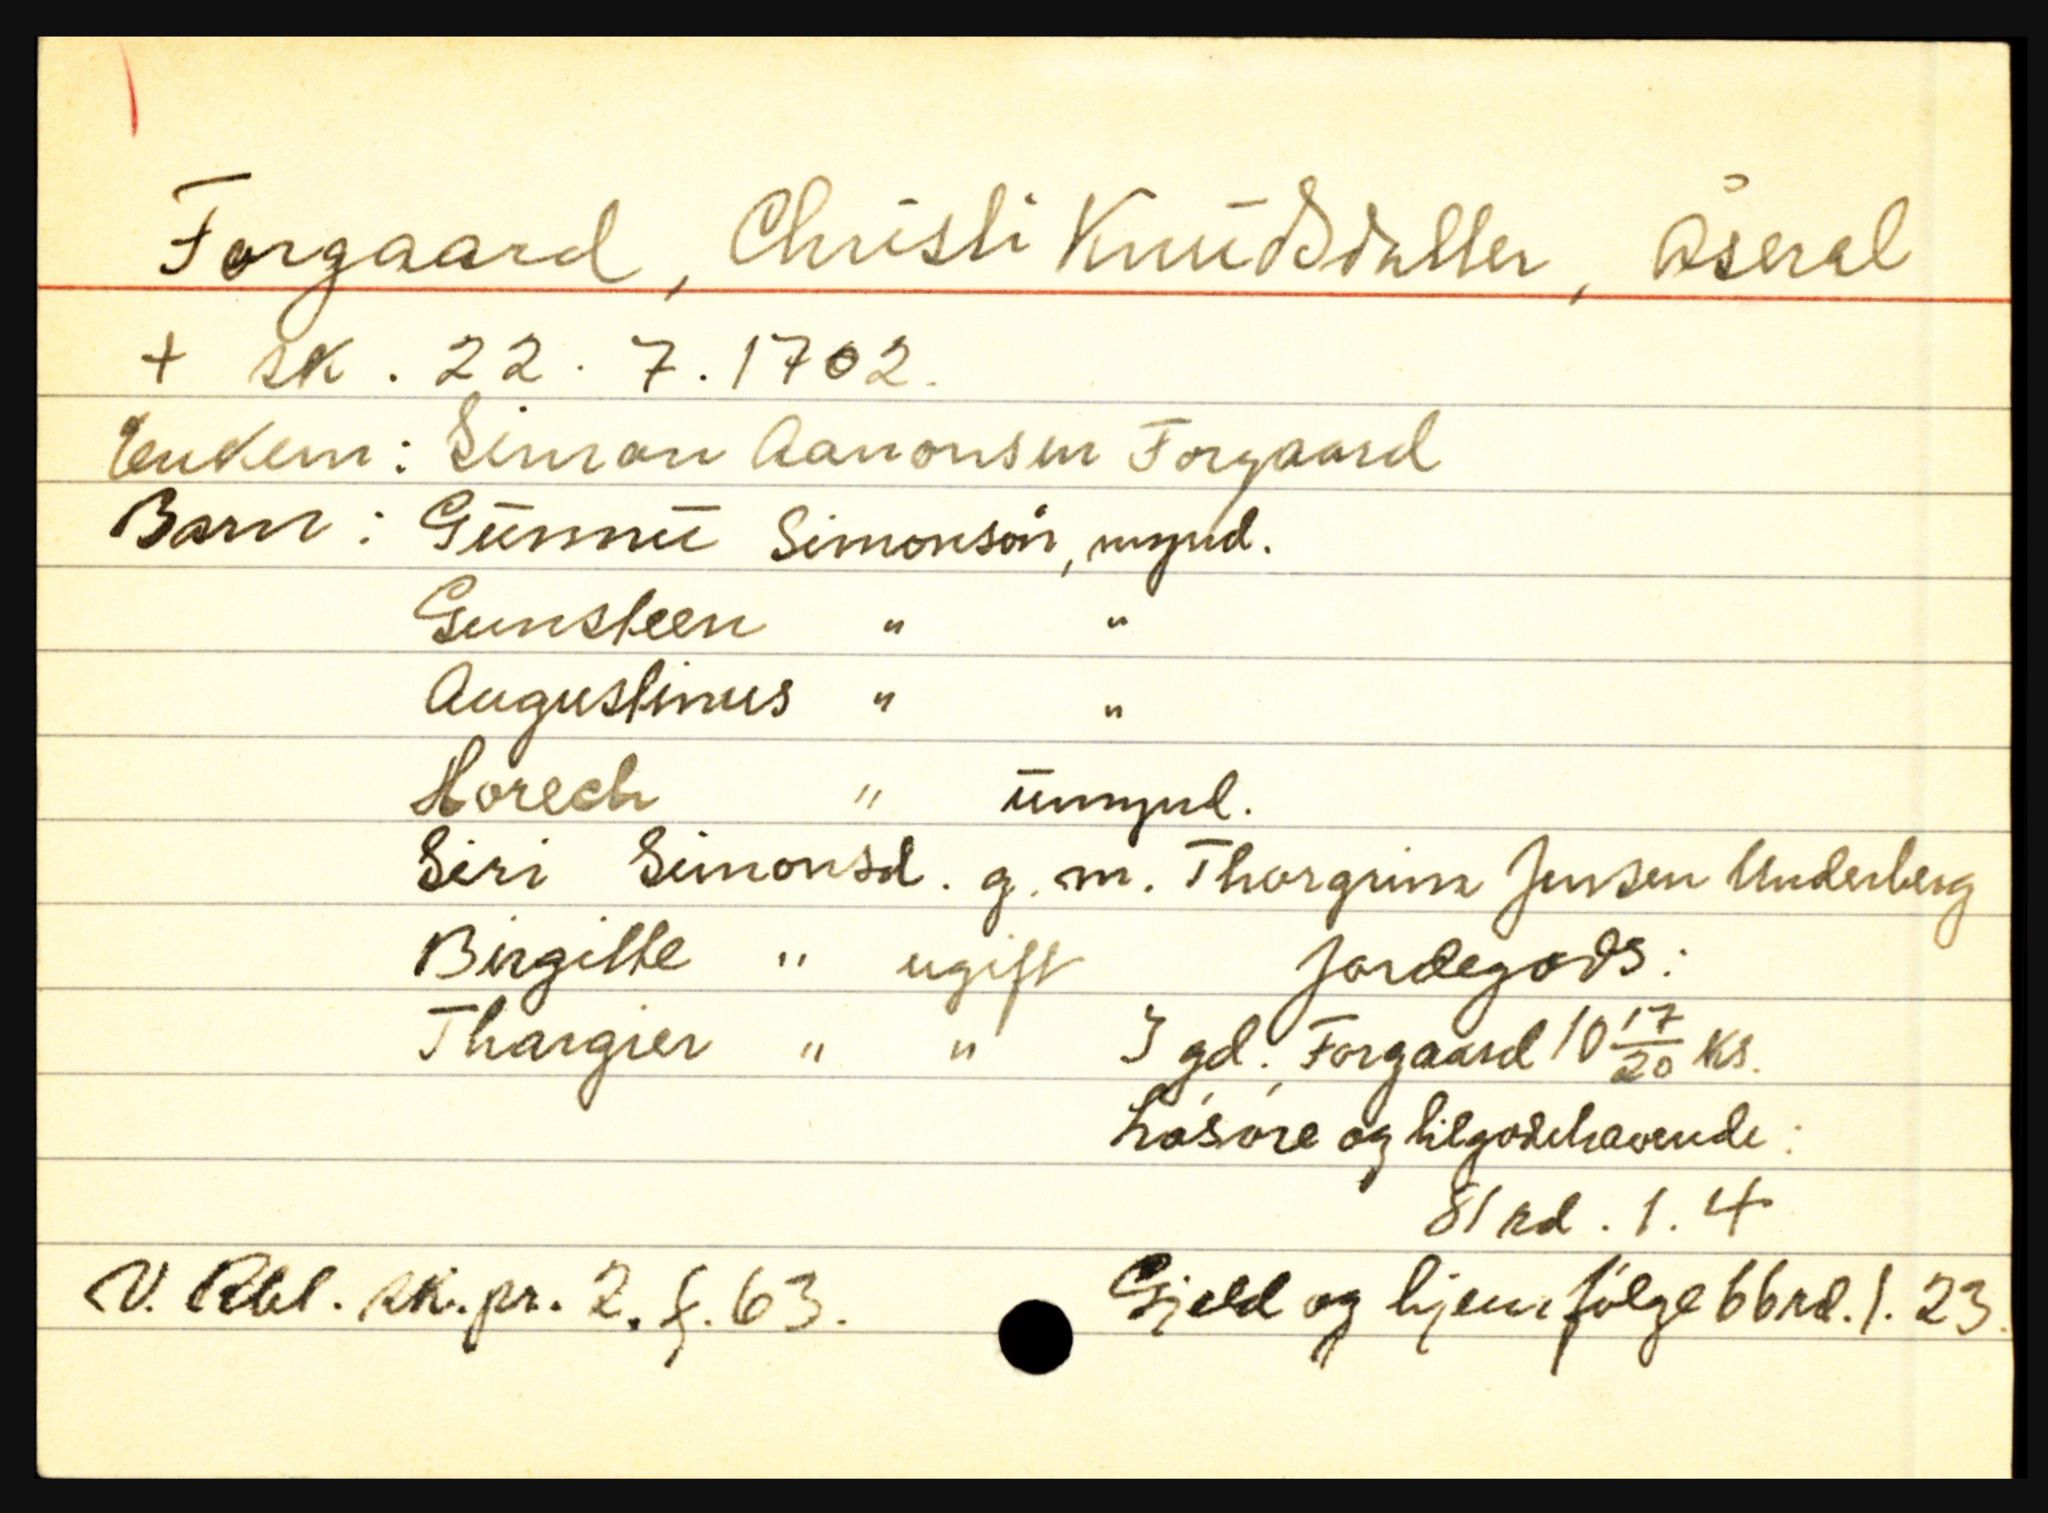 Forgaard, Christi Knudsdatter, Åseral
+ sk. 22. 7. 1702.
Enkem: Simon Aanonsen Forgaard
Barn: Gunnu Simonsön, mynd.
Gunsteen " "
Augustinus " "
Horech " umynd.
Siri Simonsd. g. m. Thorgrim Jensen Underberg
Birgitte " ugift Jordegods:
Thargier " " I gd. Forgaard 10 17/20 ks.
Lösöre og tilgodehavende:
81 rd. 1. 4
V. Rbl. sk. pr. 2. f. 63. Gjeld og hjemfölge 66 rd. 1. 23.